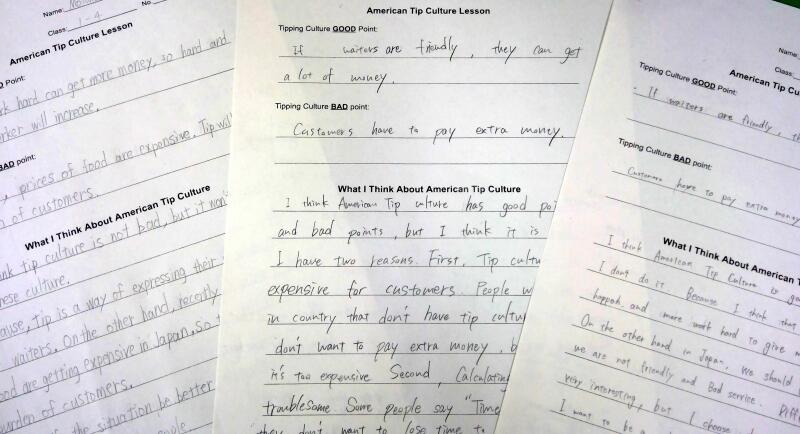 Name:
Class: 1-4
No
American Tip Culture Lesson
D Point:
rk hard can get more money, so hard and
rker will increase.
BAD point:
, prices of food are expensive. Tip will
n of customers.
What I Think About American Tip Culture
nk tip culture is not bad, but it won'
nese culture.
ause, tip is a way of expressing their
waiters. On the other hand, recently
ood are getting expensive in Japan, so t
urden of customers.
the situation be better
people
American Tip Culture Lesson
Tipping Culture GOOD Point:
If waiters are friendly, they can get
a lot of money.
Tipping Culture BAD point:
Customers have to pay extra money.
What I Think About American Tip Culture
I think American Tip culture has good poi
and bad points, but I think it is
I have two reasons. First, Tip cultu
expensive for customers. People w
in country that don't have tip cultur
don't want to pay extra money, b
it's too expensive Second, Calculating
troublesome Some people say "Time
they don't want to lose time to
Name:
Class:
American Tip Cu
Tipping Culture GOOD Point:
If waiters are friendly, th
Tipping Culture BAD point:
Customers have to pay extra money
What I Think About American T
I think American Tip Culture is g
I don't do it. Because I think that
and more work hard to give m
On the other hand in Japan, We should
we are not friendly and Bad service. Diff
very interesting, but I choose
I want to be a